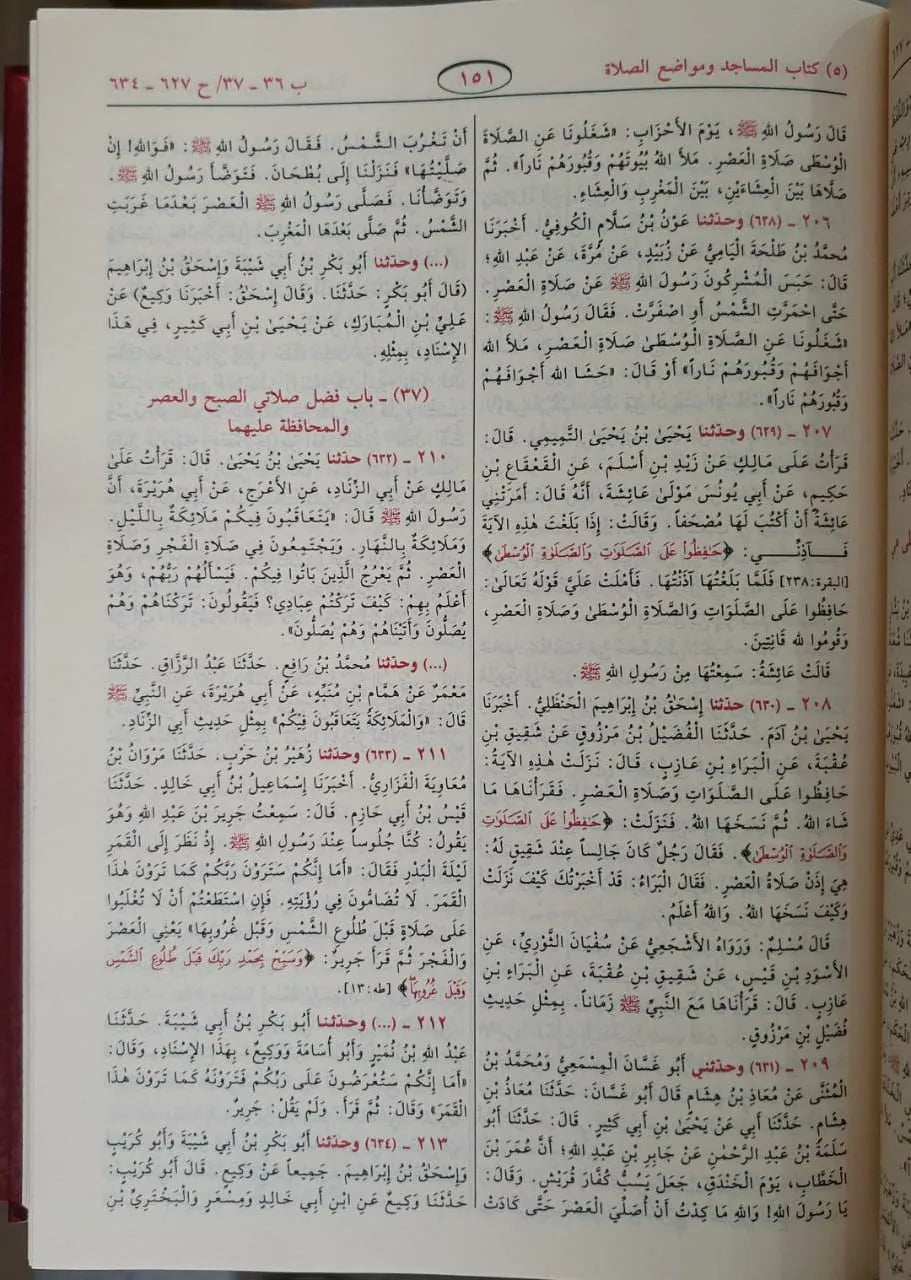 (٥) كتاب المساجد ومواضع الصلاة
١٥١
ب ٣٦ ـ ٣٧/ ح ٦٢٧ ـ ٦٣٤
قَالَ رَسُولُ اللهِ ﷺ، يَوْمَ الْأَحْزَابِ: «شَغَلُونَا عَنِ الصَّلَاةِ
الْوُسْطَى صَلَاةِ الْعَصْرِ. مَلَأَ اللهُ بُيُوتَهُمْ وَقُبُورَهُمْ نَاراً». ثُمَّ
صَلَّاهَا بَيْنَ الْعِشَاءَيْنِ، بَيْنَ الْمَغْرِبِ وَالْعِشَاءِ.
٢٠٦ ـ (٦٢٨) وحدّثنا عَوْنُ بْنُ سَلَّامٍ الْكُوفِيُّ. أَخْبَرَنَا
مُحَمَّدُ بْنُ طَلْحَةَ الْيَامِيُّ عَنْ زُبَيْدٍ، عَنْ مُرَّةَ، عَنْ عَبْدِ اللهِ؛
قَالَ: حَبَسَ الْمُشْرِكُونَ رَسُولَ اللهِ ﷺ عَنْ صَلَاةِ الْعَصْرِ.
حَتَّى احْمَرَّتِ الشَّمْسُ أَوِ اصْفَرَّتْ. فَقَالَ رَسُولُ اللهِ ﷺ:
«شَغَلُونَا عَنِ الصَّلَاةِ الْوُسْطَىٰ صَلَاةِ الْعَصْرِ، مَلَأَ الله
أَجْوَافَهُمْ وَقُبُورَهُمْ نَاراً» أَوْ قَالَ: «حَشَا الله أَجْوَافَهُمْ
وَقُبُورَهُمْ نَاراً».
٢٠٧ ـ (٦٢٩) وحدّثنا يَحْيَىٰ بْنُ يَحْيَىٰ التَّمِيمِي. قَالَ:
قَرَأْتُ عَلَى مَالِكٍ عَنْ زَيْدِ بْنِ أَسْلَمَ، عَنِ الْقَعْقَاعِ بْنِ
حَكِيمٍ، عَنْ أَبِي يُونُسَ مَوْلَىٰ عَائِشَةَ، أَنَّهُ قَالَ: أَمَرَتْنِي
عَائِشَةُ أَنْ أَكْتُبَ لَهَا مُصْحَفاً. وَقَالَتْ: إِذَا بَلَغْتَ هٰذِهِ الآيَةَ
فَآذِنِّي: ﴿حَٰفِظُوا۟ عَلَى ٱلصَّلَوَٰتِ وَٱلصَّلَوٰةِ ٱلْوُسْطَىٰ﴾
[البقرة: ٢٣٨] فَلَمَّا بَلَغْتُهَا آذَنْتُهَا. فَأَمْلَتْ عَلَيَّ قَوْلَهُ تَعَالَىٰ:
حَافِظُوا عَلَى الصَّلَوَاتِ وَالصَّلَاةِ الْوُسْطَىٰ وَصَلَاةِ الْعَصْرِ،
وَقُومُوا لله قَانِتِينَ.
قَالَتْ عَائِشَةُ: سَمِعْتُهَا مِنْ رَسُولِ اللهِ ﷺ.
٢٠٨ ـ (٦٣٠) حدّثنا إِسْحَقُ بْنُ إِبْرَاهِيمَ الْحَنْظَلِيُّ. أَخْبَرَنَا
يَحْيَىٰ بْنُ آدَمَ. حَدَّثَنَا الْفُضَيْلُ بْنُ مَرْزُوقٍ عَنْ شَقِيقِ بْنِ
عُقْبَةَ، عَنِ الْبَرَاءِ بْنِ عَازِبٍ، قَالَ: نَزَلَتْ هٰذِهِ الآيَةُ:
حَافِظُوا عَلَى الصَّلَوَاتِ وَصَلَاةِ الْعَصْرِ. فَقَرَأْنَاهَا مَا
شَاءَ اللهُ. ثُمَّ نَسَخَهَا اللهُ. فَنَزَلَتْ: ﴿حَٰفِظُوا۟ عَلَى ٱلصَّلَوَٰتِ
وَٱلصَّلَوٰةِ ٱلْوُسْطَىٰ﴾. فَقَالَ رَجُلٌ كَانَ جَالِساً عِنْدَ شَقِيقٍ لَهُ:
هِيَ إِذَنْ صَلَاةُ الْعَصْرِ. فَقَالَ الْبَرَاءُ: قَدْ أَخْبَرْتُكَ كَيْفَ نَزَلَتْ
وَكَيْفَ نَسَخَهَا اللهُ. وَاللهُ أَعْلَمُ.
قَالَ مُسْلِمٌ: وَرَوَاهُ الأَشْجَعِيُّ عَنْ سُفْيَانَ الثَّوْرِيِّ، عَنِ
الأَسْوَدِ بْنِ قَيْسٍ، عَنْ شَقِيقِ بْنِ عُقْبَةَ، عَنِ الْبَرَاءِ بْنِ
عَازِبٍ. قَالَ: قَرَأْنَاهَا مَعَ النَّبِيِّ ﷺ زَمَاناً. بِمِثْلِ حَدِيثِ
فُضَيْلِ بْنِ مَرْزُوقٍ.
٢٠٩ ـ (٦٣١) وحدّثني أَبُو غَسَّانَ الْمِسْمَعِيُّ وَمُحَمَّدُ بْنُ
الْمُثَنَّى عَنْ مُعَاذِ بْنِ هِشَامٍ قَالَ أَبُو غَسَّانَ: حَدَّثَنَا مُعَاذُ بْنُ
هِشَامٍ. حَدَّثَنَا أَبِي عَنْ يَحْيَىٰ بْنِ أَبِي كَثِيرٍ. قَالَ: حَدَّثَنَا أَبُو
سَلَمَةَ بْنُ عَبْدِ الرَّحْمٰنِ عَنْ جَابِرِ بْنِ عَبْدِ اللهِ؛ أَنَّ عُمَرَ بْنَ
الْخَطَّابِ، يَوْمَ الْخَنْدَقِ، جَعَلَ يَسُبُّ كُفَّارَ قُرَيْشٍ. وَقَالَ:
يَا رَسُولَ اللهِ! وَاللهِ مَا كِدْتُ أَنْ أُصَلِّيَ الْعَصْرَ حَتَّى كَادَتْ
أَنْ تَغْرُبَ الشَّمْسُ. فَقَالَ رَسُولُ اللهِ ﷺ: «فَوَاللهِ! إِنْ
صَلَّيْتُهَا» فَنَزَلْنَا إِلَى بُطْحَانَ. فَتَوَضَّأَ رَسُولُ اللهِ ﷺ.
وَتَوَضَّأْنَا. فَصَلَّى رَسُولُ اللهِ ﷺ الْعَصْرَ بَعْدَمَا غَرَبَتِ
الشَّمْسُ. ثُمَّ صَلَّى بَعْدَهَا الْمَغْرِبَ.
(...) وحدّثنا أَبُو بَكْرِ بْنُ أَبِي شَيْبَةَ وَإِسْحَقُ بْنُ إِبْرَاهِيمَ
(قَالَ أَبُو بَكْرٍ: حَدَّثَنَا. وَقَالَ إِسْحَقُ: أَخْبَرَنَا وَكِيعٌ) عَنْ
عَلِيِّ بْنِ الْمُبَارَكِ، عَنْ يَحْيَىٰ بْنِ أَبِي كَثِيرٍ، فِي هَذَا
الإِسْنَادِ، بِمِثْلِهِ.
(٣٧) ـ باب فضل صلاتي الصبح والعصر
والمحافظة عليهما
٢١٠ ـ (٦٣٢) حدّثنا يَحْيَىٰ بْنُ يَحْيَىٰ. قَالَ: قَرَأْتُ عَلَىٰ
مَالِكٍ عَنْ أَبِي الزِّنَادِ، عَنِ الأَعْرَجِ، عَنْ أَبِي هُرَيْرَةَ، أَنَّ
رَسُولَ اللهِ ﷺ قَالَ: «يَتَعَاقَبُونَ فِيكُمْ مَلَائِكَةٌ بِاللَّيْلِ.
وَمَلَائِكَةٌ بِالنَّهَارِ. وَيَجْتَمِعُونَ فِي صَلَاةِ الْفَجْرِ وَصَلَاةِ
الْعَصْرِ. ثُمَّ يَعْرُجُ الَّذِينَ بَاتُوا فِيكُمْ. فَيَسْأَلُهُمْ رَبُّهُمْ، وَهُوَ
أَعْلَمُ بِهِمْ: كَيْفَ تَرَكْتُمْ عِبَادِي؟ فَيَقُولُونَ: تَرَكْنَاهُمْ وَهُمْ
يُصَلُّونَ وَأَتَيْنَاهُمْ وَهُمْ يُصَلُّونَ».
(...) وحدّثنا مُحَمَّدُ بْنُ رَافِعٍ. حَدَّثَنَا عَبْدُ الرَّزَّاقِ. حَدَّثَنَا
مَعْمَرٌ عَنْ هَمَّامِ بْنِ مُنَبِّهٍ، عَنْ أَبِي هُرَيْرَةَ، عَنِ النَّبِيِّ ﷺ
قَالَ: «وَالْمَلَائِكَةُ يَتَعَاقَبُونَ فِيكُمْ» بِمِثْلِ حَدِيثِ أَبِي الزِّنَادِ.
٢١١ ـ (٦٣٣) وحدّثنا زُهَيْرُ بْنُ حَرْبٍ. حَدَّثَنَا مَرْوَانُ بْنُ
مُعَاوِيَةَ الْفَزَارِيُّ. أَخْبَرَنَا إِسْمَاعِيلُ بْنُ أَبِي خَالِدٍ. حَدَّثَنَا
قَيْسُ بْنُ أَبِي حَازِمٍ. قَالَ: سَمِعْتُ جَرِيرَ بْنَ عَبْدِ اللهِ وَهُوَ
يَقُولُ: كُنَّا جُلُوساً عِنْدَ رَسُولِ اللهِ ﷺ. إِذْ نَظَرَ إِلَى الْقَمَرِ
لَيْلَةَ الْبَدْرِ فَقَالَ: «أَمَا إِنَّكُمْ سَتَرَوْنَ رَبَّكُمْ كَمَا تَرَوْنَ هٰذَا
الْقَمَرَ. لَا تُضَامُّونَ فِي رُؤْيَتِهِ. فَإِنِ اسْتَطَعْتُمْ أَنْ لَا تُغْلَبُوا
عَلَى صَلَاةٍ قَبْلَ طُلُوعِ الشَّمْسِ وَقَبْلَ غُرُوبِهَا» يَعْنِي الْعَصْرَ
وَالْفَجْرَ ثُمَّ قَرَأَ جَرِيرٌ: ﴿وَسَبِّحْ بِحَمْدِ رَبِّكَ قَبْلَ طُلُوعِ ٱلشَّمْسِ
وَقَبْلَ غُرُوبِهَا﴾ [طه: ١٣].
٢١٢ ـ (...) وحدّثنا أَبُو بَكْرِ بْنُ أَبِي شَيْبَةَ. حَدَّثَنَا
عَبْدُ اللهِ بْنُ نُمَيْرٍ وَأَبُو أُسَامَةَ وَوَكِيعٌ، بِهَذَا الإِسْنَادِ، وَقَالَ:
«أَمَا إِنَّكُمْ سَتُعْرَضُونَ عَلَى رَبِّكُمْ فَتَرَوْنَهُ كَمَا تَرَوْنَ هٰذَا
الْقَمَرَ» وَقَالَ: ثُمَّ قَرَأَ. وَلَمْ يَقُلْ: جَرِيرٌ.
٢١٣ ـ (٦٣٤) وحدّثنا أَبُو بَكْرِ بْنُ أَبِي شَيْبَةَ وَأَبُو كُرَيْبٍ
وَإِسْحَقُ بْنُ إِبْرَاهِيمَ. جَمِيعاً عَنْ وَكِيعٍ. قَالَ أَبُو كُرَيْبٍ:
حَدَّثَنَا وَكِيعٌ عَنِ ابْنِ أَبِي خَالِدٍ وَمِسْعَرٍ وَالْبَخْتَرِيِّ بْنِ